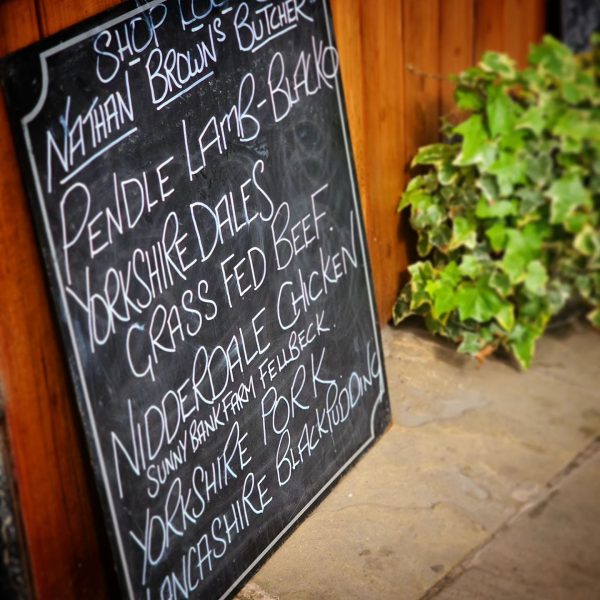 SHOP LOC
NATHAN BROWNS BUTCHER
PENDLE LAMB - BLACKO
YORKSHIRE DALES
GRASS FED BEEF.
NIDDERDALE CHICKEN
SUNNY BANK FARM FELLBECK.
YORKSHIRE PORK.
LANCASHIRE BLACKPUDDING